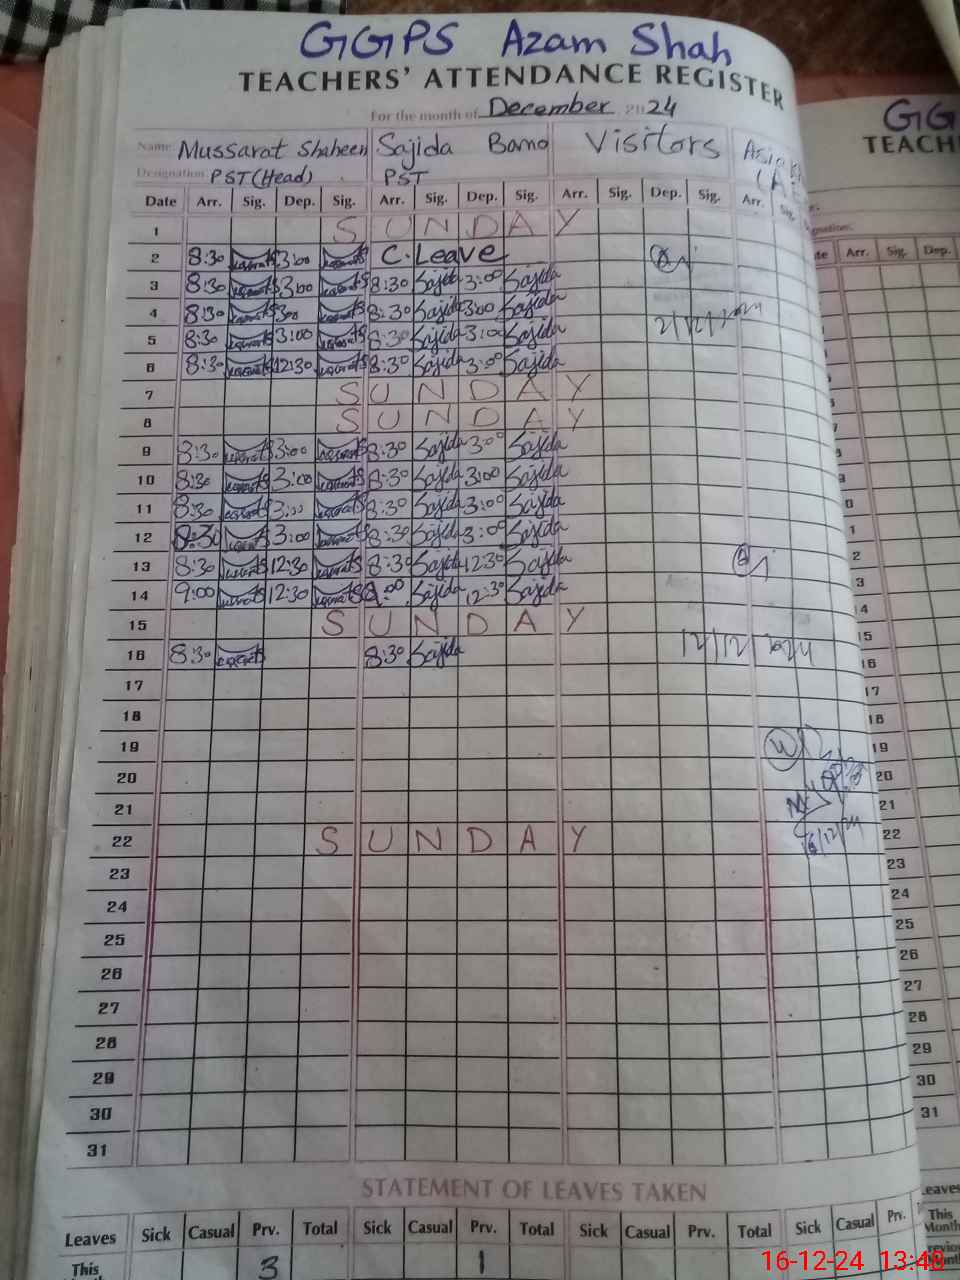 GGPS Azam Shah
TEACHERS' ATTENDANCE REGISTER
For the month of December 2024
Name Mussarat Shaheen Sajida Bano Visitors Asia
Designation PST (Head) PST
Date Arr. Sig. Dep. Sig. Arr. Sig. Dep. Sig. Arr. Sig. Dep. Sig. Arr. Sig.
1 SUNDAY
2 8:30 3:00 C.Leave
3 8:30 3:00 8:30 Sajida 3:00 Sajida
4 8:30 3:00 8:30 Sajida 3:00 Sajida
5 8:30 3:00 8:30 Sajida 3:00 Sajida 2/12/2024
6 8:30 12:30 8:30 Sajida 3:00 Sajida
7 SUNDAY
8 SUNDAY
9 8:30 3:00 8:30 Sajida 3:00 Sajida
10 8:30 3:00 8:30 Sajida 3:00 Sajida
11 8:30 3:00 8:30 Sajida 3:00 Sajida
12 8:30 3:00 8:30 Sajida 3:00 Sajida
13 8:30 12:30 8:30 Sajida 12:30 Sajida
14 9:00 12:30 9:00 Sajida 12:30 Sajida
15 SUNDAY
16 8:30 8:30 Sajida 12/12/2024
17
18
19
20
21
22 SUNDAY 16/12/24
23
24
25
26
27
28
29
30
31
STATEMENT OF LEAVES TAKEN
Leaves Sick Casual Prv. Total Sick Casual Prv. Total Sick Casual Prv. Total Sick Casual Prv.
This 3 1
GG
TEACH
Arr. Sig. Dep.
15
16
17
18
19
20
21
22
23
24
25
26
27
28
29
30
31
Leaves
This
Month
16-12-24 13:48